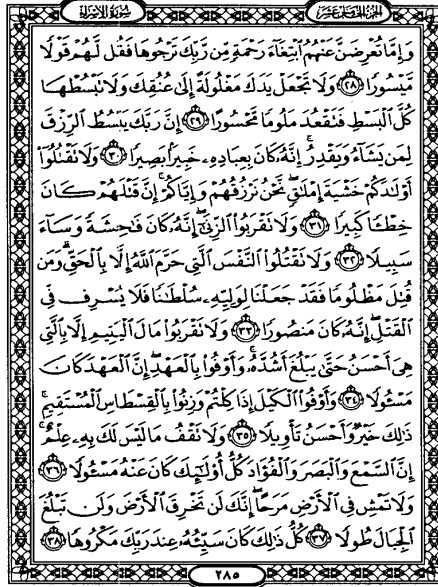 سُورَةُ الإِسْرَاءِ
الجُزْءُ الخَامِسَ عَشَرَ
وَإِمَّا تُعْرِضَنَّ عَنْهُمُ ٱبْتِغَآءَ رَحْمَةٍ مِّن رَّبِّكَ تَرْجُوهَا فَقُل لَّهُمْ قَوْلًا
مَّيْسُورًا ٢٨ وَلَا تَجْعَلْ يَدَكَ مَغْلُولَةً إِلَىٰ عُنُقِكَ وَلَا تَبْسُطْهَا
كُلَّ ٱلْبَسْطِ فَتَقْعُدَ مَلُومًا مَّحْسُورًا ٢٩ إِنَّ رَبَّكَ يَبْسُطُ ٱلرِّزْقَ
لِمَن يَشَآءُ وَيَقْدِرُ ۚ إِنَّهُۥ كَانَ بِعِبَادِهِۦ خَبِيرًۢا بَصِيرًا ٣٠ وَلَا تَقْتُلُوٓا۟
أَوْلَـٰدَكُمْ خَشْيَةَ إِمْلَـٰقٍ ۖ نَّحْنُ نَرْزُقُهُمْ وَإِيَّاكُمْ ۚ إِنَّ قَتْلَهُمْ كَانَ
خِطْـًٔا كَبِيرًا ٣١ وَلَا تَقْرَبُوا۟ ٱلزِّنَىٰٓ ۖ إِنَّهُۥ كَانَ فَـٰحِشَةً وَسَآءَ
سَبِيلًا ٣٢ وَلَا تَقْتُلُوا۟ ٱلنَّفْسَ ٱلَّتِى حَرَّمَ ٱللَّهُ إِلَّا بِٱلْحَقِّ ۗ وَمَن
قُتِلَ مَظْلُومًا فَقَدْ جَعَلْنَا لِوَلِيِّهِۦ سُلْطَـٰنًا فَلَا يُسْرِف فِّى
ٱلْقَتْلِ ۖ إِنَّهُۥ كَانَ مَنصُورًا ٣٣ وَلَا تَقْرَبُوا۟ مَالَ ٱلْيَتِيمِ إِلَّا بِٱلَّتِى
هِىَ أَحْسَنُ حَتَّىٰ يَبْلُغَ أَشُدَّهُۥ ۚ وَأَوْفُوا۟ بِٱلْعَهْدِ ۖ إِنَّ ٱلْعَهْدَ كَانَ
مَسْـُٔولًا ٣٤ وَأَوْفُوا۟ ٱلْكَيْلَ إِذَا كِلْتُمْ وَزِنُوا۟ بِٱلْقِسْطَاسِ ٱلْمُسْتَقِيمِ ۚ
ذَٰلِكَ خَيْرٌ وَأَحْسَنُ تَأْوِيلًا ٣٥ وَلَا تَقْفُ مَا لَيْسَ لَكَ بِهِۦ عِلْمٌ ۚ
إِنَّ ٱلسَّمْعَ وَٱلْبَصَرَ وَٱلْفُؤَادَ كُلُّ أُو۟لَـٰٓئِكَ كَانَ عَنْهُ مَسْـُٔولًا ٣٦
وَلَا تَمْشِ فِى ٱلْأَرْضِ مَرَحًا ۖ إِنَّكَ لَن تَخْرِقَ ٱلْأَرْضَ وَلَن تَبْلُغَ
ٱلْجِبَالَ طُولًا ٣٧ كُلُّ ذَٰلِكَ كَانَ سَيِّئُهُۥ عِندَ رَبِّكَ مَكْرُوهًا ٣٨
٢٨٥